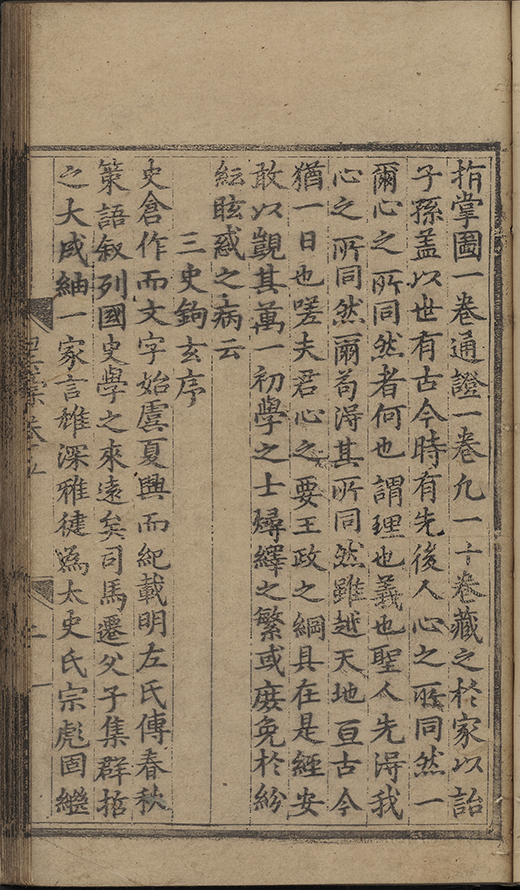 指掌圖一卷通證一卷九一十卷藏之於家以詒
子孫蓋以世有古今時有先後人心之所同然一
爾心之所同然者何也謂理也義也聖人先淂我
心之所同然爾苟淂其所同然雖越天地亘古今
猶一日也嗟夫君心之要王政之綱具在是經安
敢以觀其萬一初學之士燖繹之繁或庻免於紛
紜眩惑之病云
三史鉤玄序
史倉作而文字始虞夏興而紀載明左氏傳春秋
策語叙列國史學之來遠矣司馬遷父子集群哲
之大成紬一家言雄深雅徤爲太史氏宗彪固繼